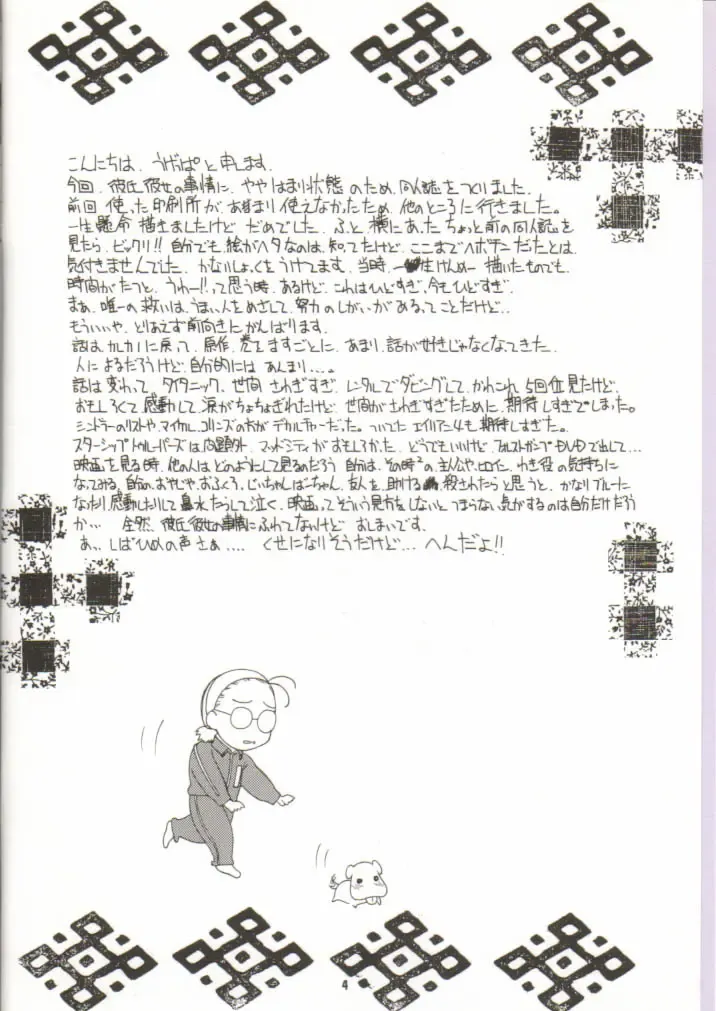 こんにちは、うげっぱと申します。
今回、彼氏彼女の事情に、ややはまり状態のため、同人誌をつくりました。
前回使った印刷所が、あまり使えなかったため、他のところに行きました。
一生懸命描きましたけど、だめでした。ふと、横にあったちょっと前の同人誌を
見たら、ビックリ!!自分でも絵がヘタなのは、知ってたけど、ここまでヘボチンだったとは、
気付きませんでした。かないしょっくをうけてます。当時、一生けんめー描いたものでも、
時間がたつと、うわー!!って思う時、あるけど、これはひどすぎ、今もひどすぎ。
まあ、唯一の救いは、うまい人をめざして、努力のしがいがあるってことだけど..
もういいや、とりあえず前向きにがんばります。
話は、カレカノに戻って、原作、巻をますごとに、あまり、話が好きじゃなくなてきた。
人によるだろうけど、自分的には、あんまり....。
話は変わって、タイタニック、世間さわぎすぎ、レンタルでダビングして、かれこれ5回位見たけど、
おもしろくて感動して、涙がちょちょぎれたけど、世間がさわぎすぎたために、期待しすぎてしまった。
シンドラーのリストや、マイケル・コリンズの方がデカルチャーだった。ついでに、エイリアン4も期待しすぎた。
スターシップ・トゥルーパーズは問題外、マッドシティがおもしろかった、どうでもいいけど、フォレストガンプDVDで出して...
映画を見る時、他の人は、どのようにして見るのだろう、自分は、その時の主人公や、ヒロイン、わき役の気持ちに
なってみる、自分の、おやじや、おふくろ、じいちゃん、ばーちゃん、友人を、助ける、殺されたらと思うと、かなりブルーに
なったり、感動したりして、鼻水たらして泣く、映画ってそういう見方をしないと、つまらない気がするのは自分だけだろう
か... 全然、彼氏彼女の事情にふれてないけど、おしまいです。
あっ、しばひめの声さぁ.... くせになりそうだけど... へんだよ!!
4